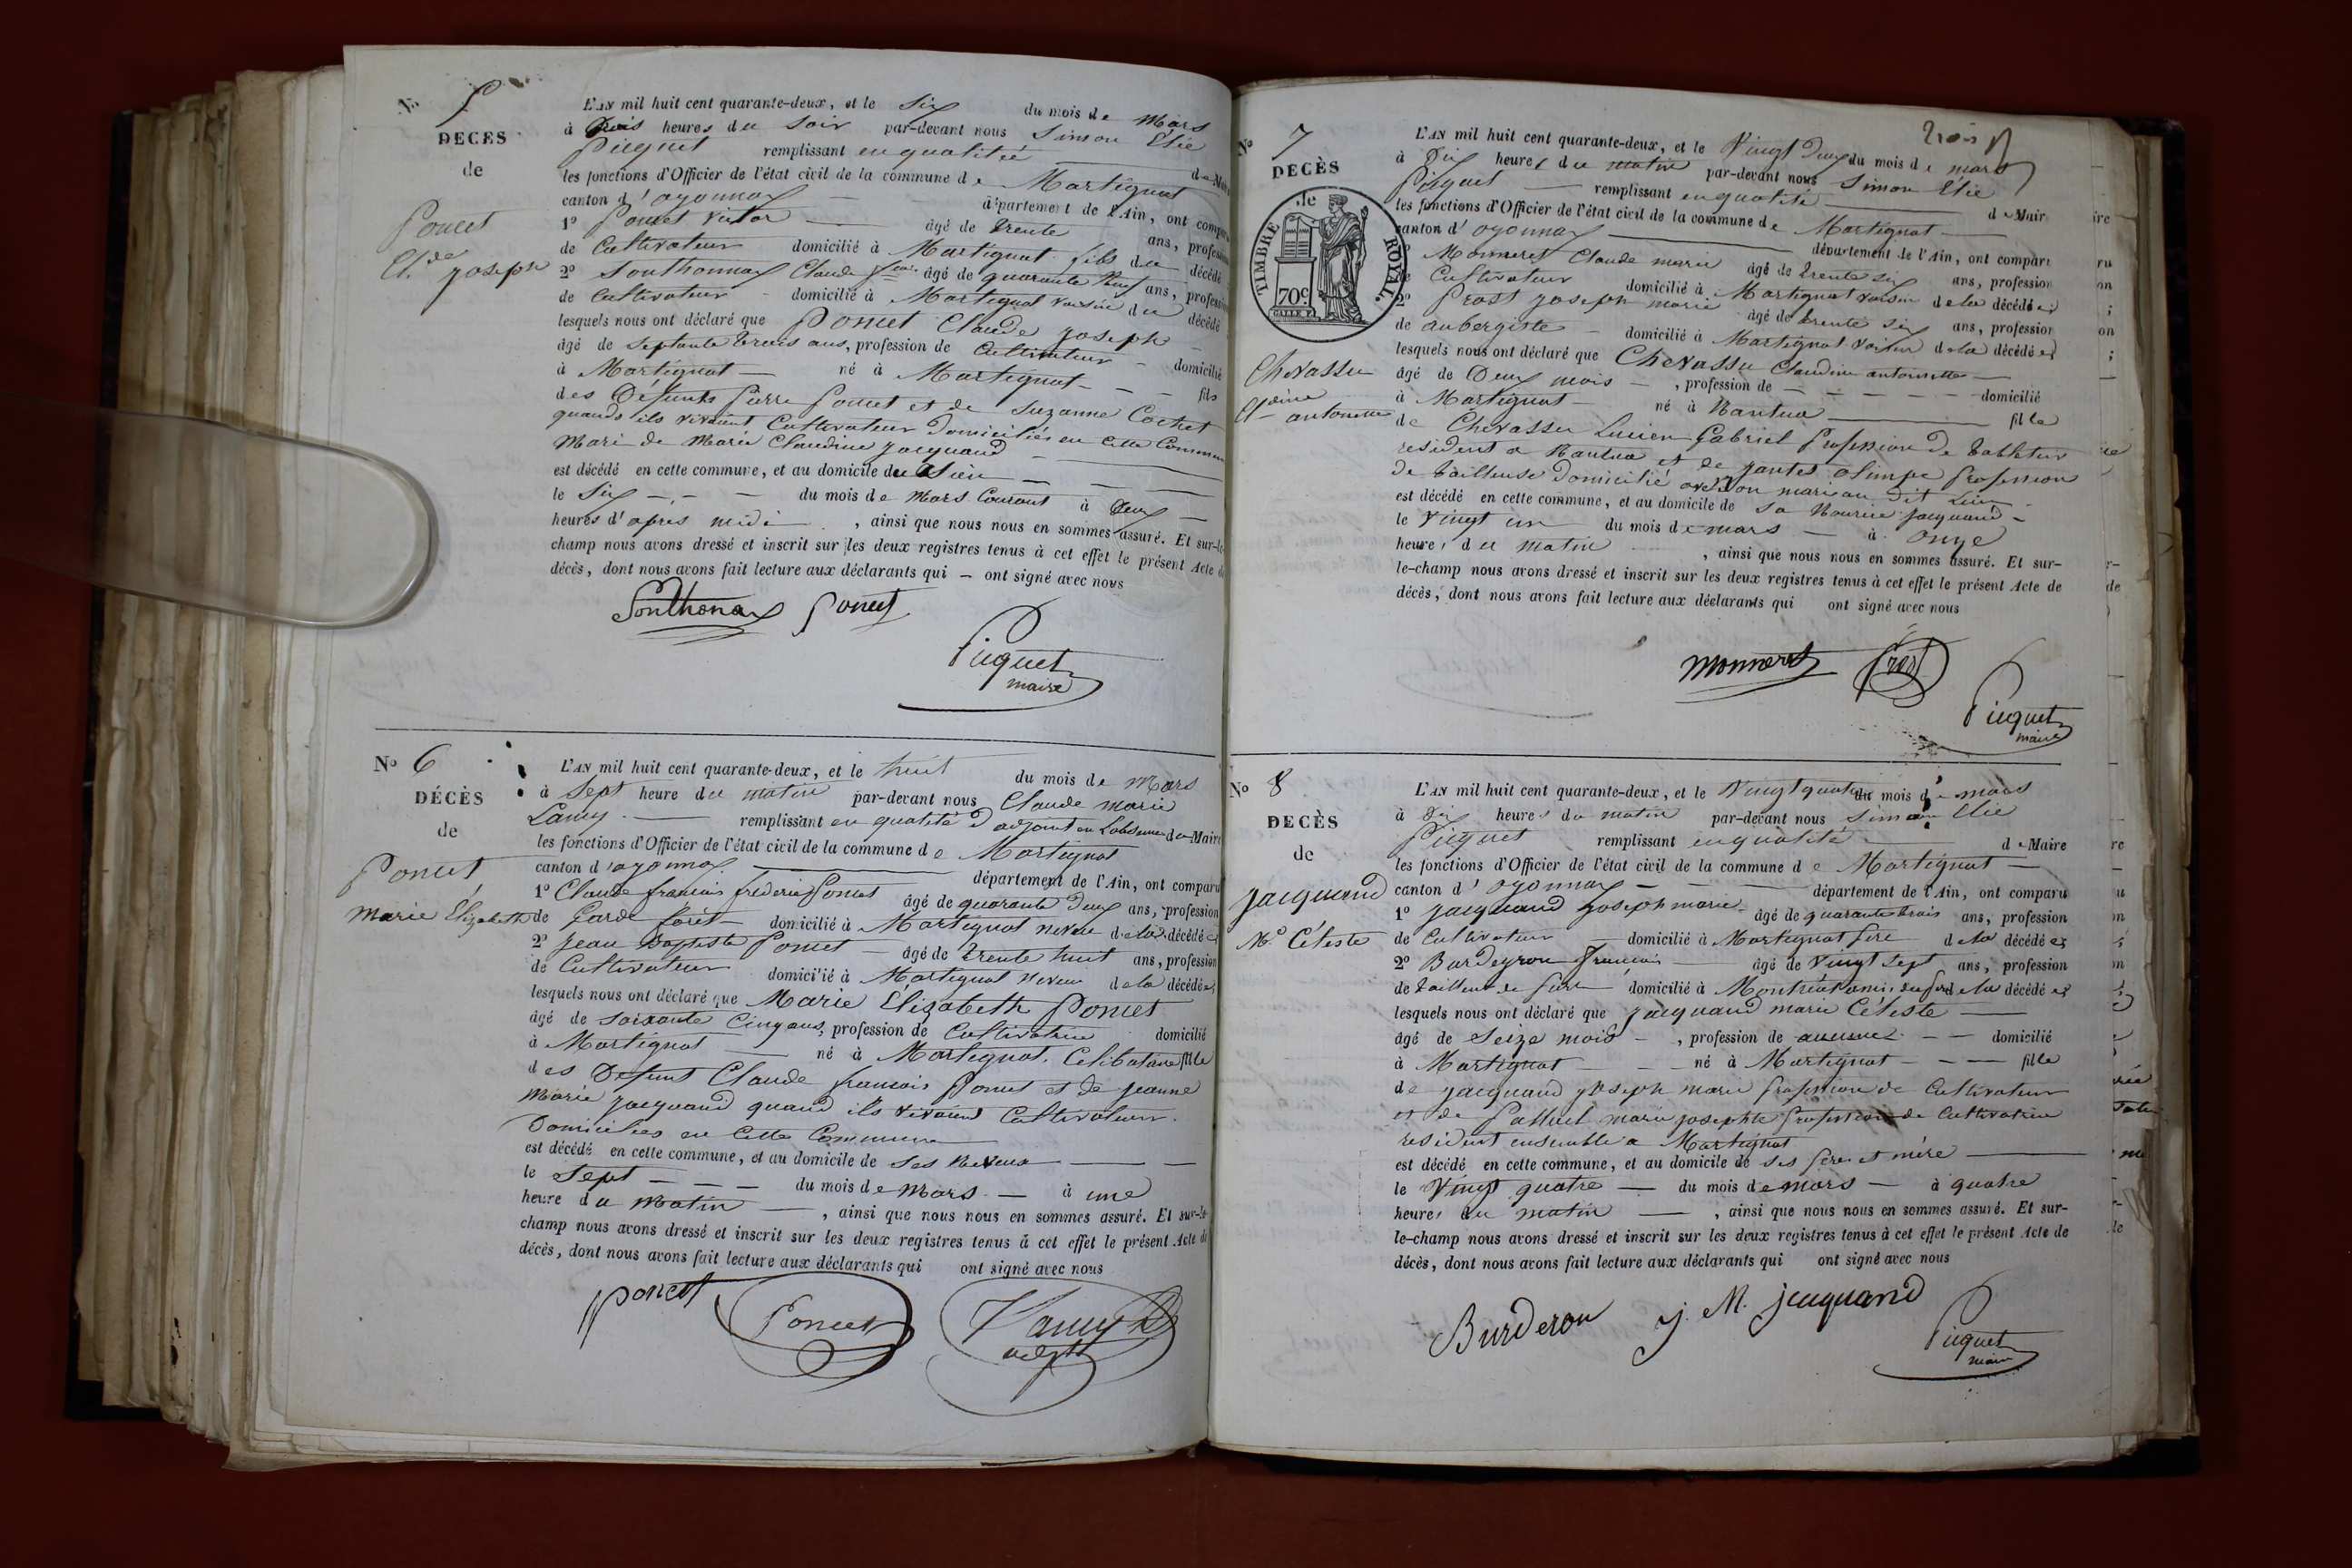 No 5
DÉCÈS
de
Poncet
Cl.de Joseph
L'AN mil huit cent quarante-deux, et le Six du mois de Mars
à trois heures du Soir par-devant nous Simon Elie
Piquet remplissant en qualité de Maire
les fonctions d'Officier de l'état civil de la commune de Martignat
canton d'oyonnax département de l'Ain, ont comparu
1o Poncet Victor âgé de trente ans, profession
de Cultivateur domicilié à Martignat fils du décédé
2o Sonthonnax Claude âgé de quarante neuf ans, profession
de Cultivateur domicilié à Martignat voisin du décédé
lesquels nous ont déclaré que Poncet Claude Joseph
âgé de septante trois ans, profession de Cultivateur domicilié
à Martignat né à Martignat fils
des Défunts Pierre Poncet et de Suzanne Cochet
quands ils vivaient Cultivateur domiciliés en cette Commune
Mari de Marie Claudine Jacquand
est décédé en cette commune, et au domicile du Sien
le Six du mois de Mars Courant à Deux
heures d'après midi, ainsi que nous nous en sommes assuré. Et sur-le-
champ nous avons dressé et inscrit sur les deux registres tenus à cet effet le présent Acte de
décès, dont nous avons fait lecture aux déclarants qui – ont signé avec nous
Sonthonax Poncet
Piquet
maire
No 6
DÉCÈS
de
Poncet
Marie Élizabeth
L'AN mil huit cent quarante-deux, et le huit du mois de Mars
à Sept heure du matin par-devant nous Claude Marie
Lamy remplissant en qualité d'adjoint en L'absence du Maire
les fonctions d'Officier de l'état civil de la commune de Martignat
canton d'oyonnax département de l'Ain, ont comparu
1o Claude francois frederic Poncet âgé de quarante deux ans, profession
de Garde forêt domicilié à Martignat neveu de la décédée
2o Jean Baptiste Poncet âgé de trente huit ans, profession
de Cultivateur domicilié à Martignat neveu de la décédée
lesquels nous ont déclaré que Marie Elizabeth Poncet
âgé de soixante Cinq ans, profession de Cultivatrice domicilié
à Martignat né à Martignat. Celibataire fille
des Defunt Claude francois Poncet et de Jeanne
Marie Jacquand quand ils vivaient Cultivateur
Domiciliés en Cette Commune
est décédé en cette commune, et au domicile de ses Neveux
le Sept du mois de Mars à une
heure du Matin, ainsi que nous nous en sommes assuré. Et sur-le-
champ nous avons dressé et inscrit sur les deux registres tenus à cet effet le présent Acte de
décès, dont nous avons fait lecture aux déclarants qui ont signé avec nous
Poncet Poncet Lamy
adjt
trois
No 7
DÉCÈS
de
TIMBRE ROYAL.
70c
Chevassu
Cl.dine antoinette
L'AN mil huit cent quarante-deux, et le Vingt Deux du mois de mars
à Dix heures du matin par-devant nous Simon Elie
Piquet remplissant en qualité de Maire
les fonctions d'Officier de l'état civil de la commune de Martignat
canton d'oyonnax département de l'Ain, ont comparu
Monneret Claude marie âgé de trente six ans, profession
de Cultivateur domicilié à Martignat voisin de la décédée
2o Prost Joseph marie âgé de trente six ans, profession
de aubergiste domicilié à Martignat voisin de la décédée
lesquels nous ont déclaré que Chevassu Claudine antoinette
âgé de Deux mois, profession de domicilié
à Martignat né à Nantua fille
de Chevassu Lucien Gabriel Profession de tabletier
resident a Nantua et de Jantet olimpe Profession
de tailleuse Domicilié avec son mari au dit Lieu
est décédé en cette commune, et au domicile de sa Nourice Jacquand
le Vingt un du mois de mars à onze
heures du matin, ainsi que nous nous en sommes assuré. Et sur-
le-champ nous avons dressé et inscrit sur les deux registres tenus à cet effet le présent Acte de
décès, dont nous avons fait lecture aux déclarants qui ont signé avec nous
Monneret Prost
Piquet
maire
No 8
DÉCÈS
de
Jacquand
Me Céleste
L'AN mil huit cent quarante-deux, et le Vingt quatre du mois de mars
à Dix heures du matin par-devant nous Simon Elie
Piquet remplissant en qualité de Maire
les fonctions d'Officier de l'état civil de la commune de Martignat
canton d'oyonnax département de l'Ain, ont comparu
1o Jacquand Joseph marie âgé de quarante trois ans, profession
de Cultivateur domicilié à Martignat père de la décédée
2o Burdeyron francois âgé de Vingt Sept ans, profession
de tailleur de pierre domicilié à Montréal ami du père de la décédée
lesquels nous ont déclaré que Jacquand marie Céleste
âgé de Seize mois, profession de aucune domicilié
à Martignat né à Martignat fille
de Jacquand Joseph marie profession de Cultivateur
et de marie Josephte profession de Cultivatrice
resident ensemble a Martignat
est décédé en cette commune, et au domicile de ses père et mère
le Vingt quatre du mois de mars à quatre
heures du matin, ainsi que nous nous en sommes assuré. Et sur-
le-champ nous avons dressé et inscrit sur les deux registres tenus à cet effet le présent Acte de
décès, dont nous avons fait lecture aux déclarants qui ont signé avec nous
Burderon J. M. Jacquand
Piquet
maire